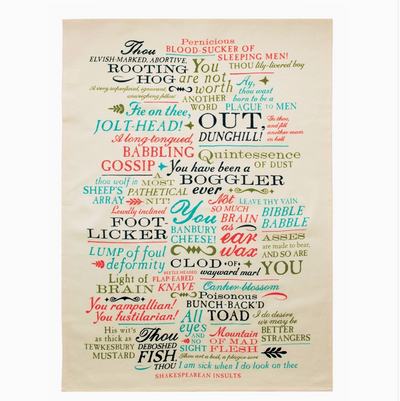 Pernicious
Thou BLOOD-SUCKER OF
ELVISH-MARKED, ABORTIVE, SLEEPING MEN!
ROOTING You THOU lily-livered boy
HOG are not
A very superficial, ignorant, unweighing fellow worth
ANOTHER WORD
Ay, thou wast born to be a PLAGUE TO MEN
Fie on thee,
JOLT-HEAD!
OUT, DUNGHILL!
A long-tongued,
BABBLING
GOSSIP
Quintessence
OF DUST
You have been a
BOGGLER
ever
thou wolf in
SHEEP'S
ARRAY
A MOST
PATHETICAL
NIT!
Not
SO MUCH
BRAIN
as
ear
wax
LEAVE THY VAIN
BIBBLE
BABBLE
Lewdly inclined
FOOT-
LICKER
You
BANBURY
CHEESE!
ASSES
are made to bear,
AND SO ARE
YOU
LUMP of foul
deformity
CLOD of
wayward marl
Light of
BRAIN
BEETLE-HEADED
FLAP-EARED
KNAVE
Canker-blossom
You rampallian!
You fustilarian!
Poisonous
BUNCH-BACK'D
TOAD
All
eyes
AND NO
SIGHT
I do desire
we may be
BETTER
STRANGERS
His wit's
as thick as
TEWKESBURY
MUSTARD
Thou
DEBOSHED
FISH,
Mountain
OF MAD
FLESH
Thou art a boil, a plague sore
THOU I am sick when I do look on thee
SHAKESPEAREAN INSULTS